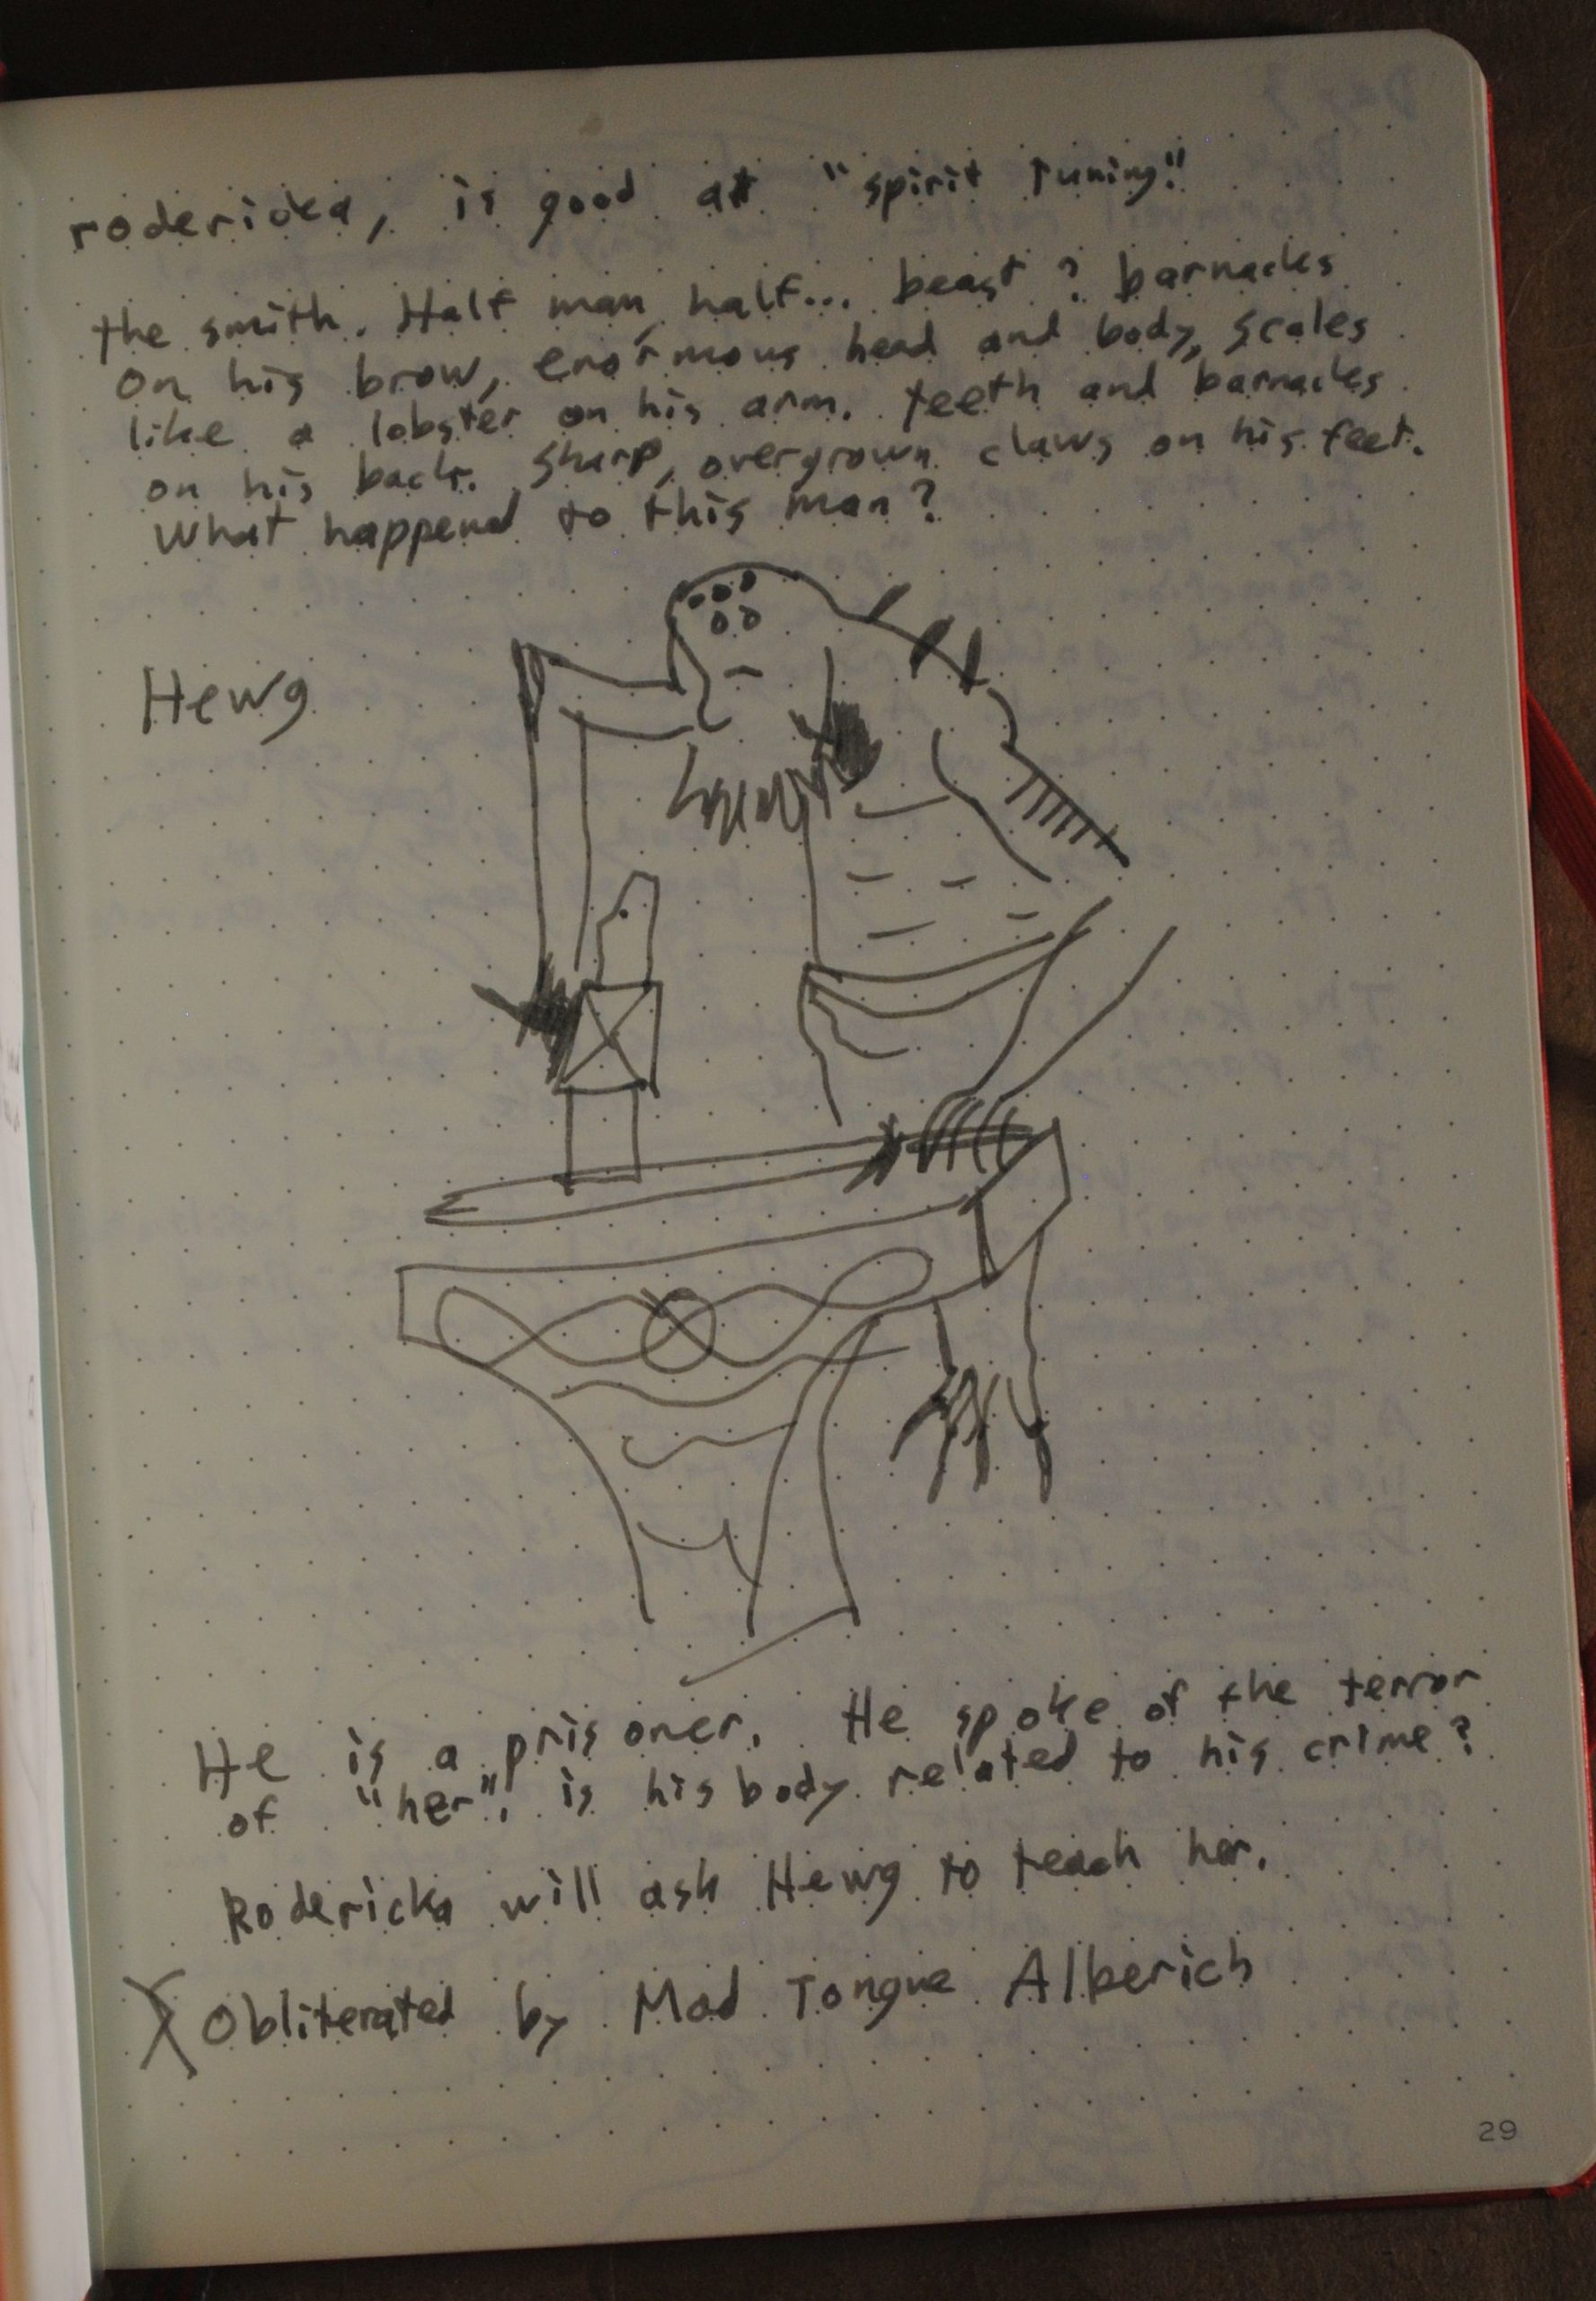 rodericka, is good at "spirit tuning"
the smith. Half man, half... beast? barnacles
on his brow, enormous head and body, scales
like a lobster on his arm. teeth and barnacles
on his back. Sharp, overgrown claws on his feet.
What happend to this man?
Hewg
He is a prisoner. He spoke of the terror
of "her". is his body related to his crime?
Rodericka will ask Hewg to teach her.
X Obliterated by Mad Tongue Alberich
29